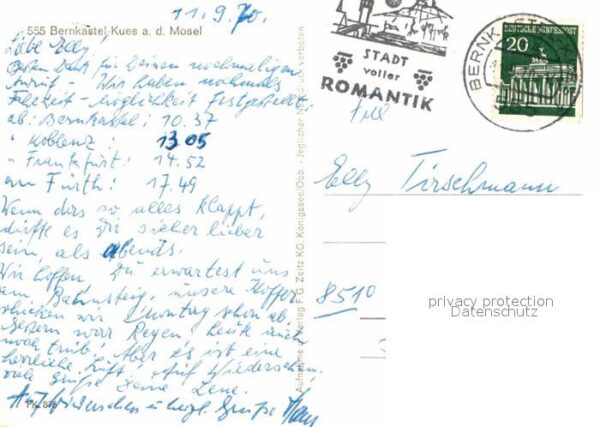 11.9.70.
555 Bernkastel-Kues a. d. Mosel
Liebe Elly!
Besten Dank für Deinen nochmaligen
Anruf - Wir haben nochmals
Fahrzeit-Möglichkeit festgestellt:
ab: Bernkastel: 10.37
" Koblenz: 13 05
" Frankfurt: 14.52
an Fürth: 17.49
Wenn das so, alles klappt,
dürfte es Dir sicher lieber
sein, als abends.
Wir hoffen Du erwartest uns
am Bahnsteig, unsere Koffer
schicken wir Montag schon ab.
Gestern war Regen, heute auch
noch trüb! Aber es ist eine
herrliche Luft. Auf Wiedersehen
viele Grüße Deine Lene.
Auf Wiedersehen u. herzl. Grüße
Aufnahme Verlag F.G. Zeitz KG. Königssee/Obb. - Jeglicher Nachdruck verboten
STADT
voller
ROMANTIK
BERNKASTEL
DEUTSCHE BUNDESPOST
20
Frl
Elly Tirschmann
8510
privacy protection
Datenschutz